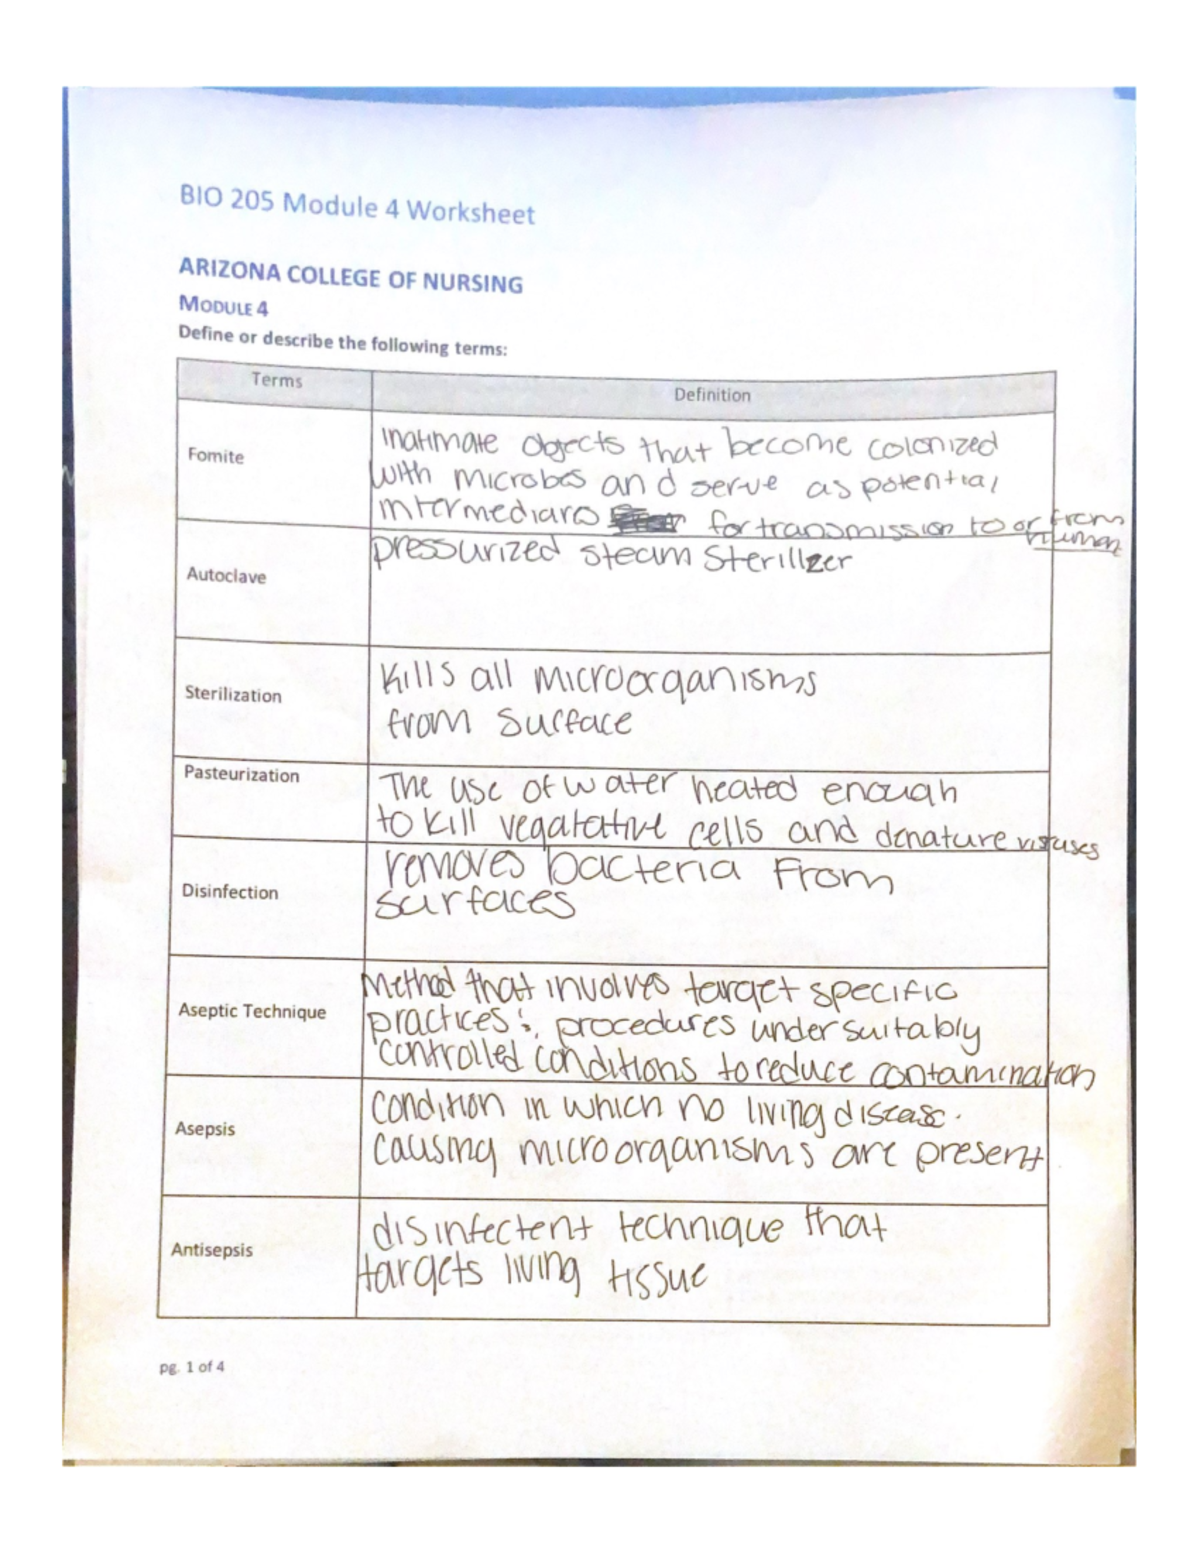 BIO 205 Module 4 Worksheet
ARIZONA COLLEGE OF NURSING
MODULE 4
Define or describe the following terms:
Terms
Definition
Fomite
Inatimate objects that become colonized
with microbes and serve as potential
intermediars for transmission to or from
human
Autoclave
pressurized steam sterilizer
Sterilization
Kills all microorganisms
from surface
Pasteurization
The use of water heated enough
to kill vegatative cells and denature viruses
Disinfection
removes bacteria from
surfaces
Aseptic Technique
Method that involves target specific
practices & procedures under suitably
controlled conditions to reduce contamination
Asepsis
condition in which no living disease-
causing microorganisms are present
Antisepsis
disinfectent technique that
targets living tissue
pg. 1 of 4